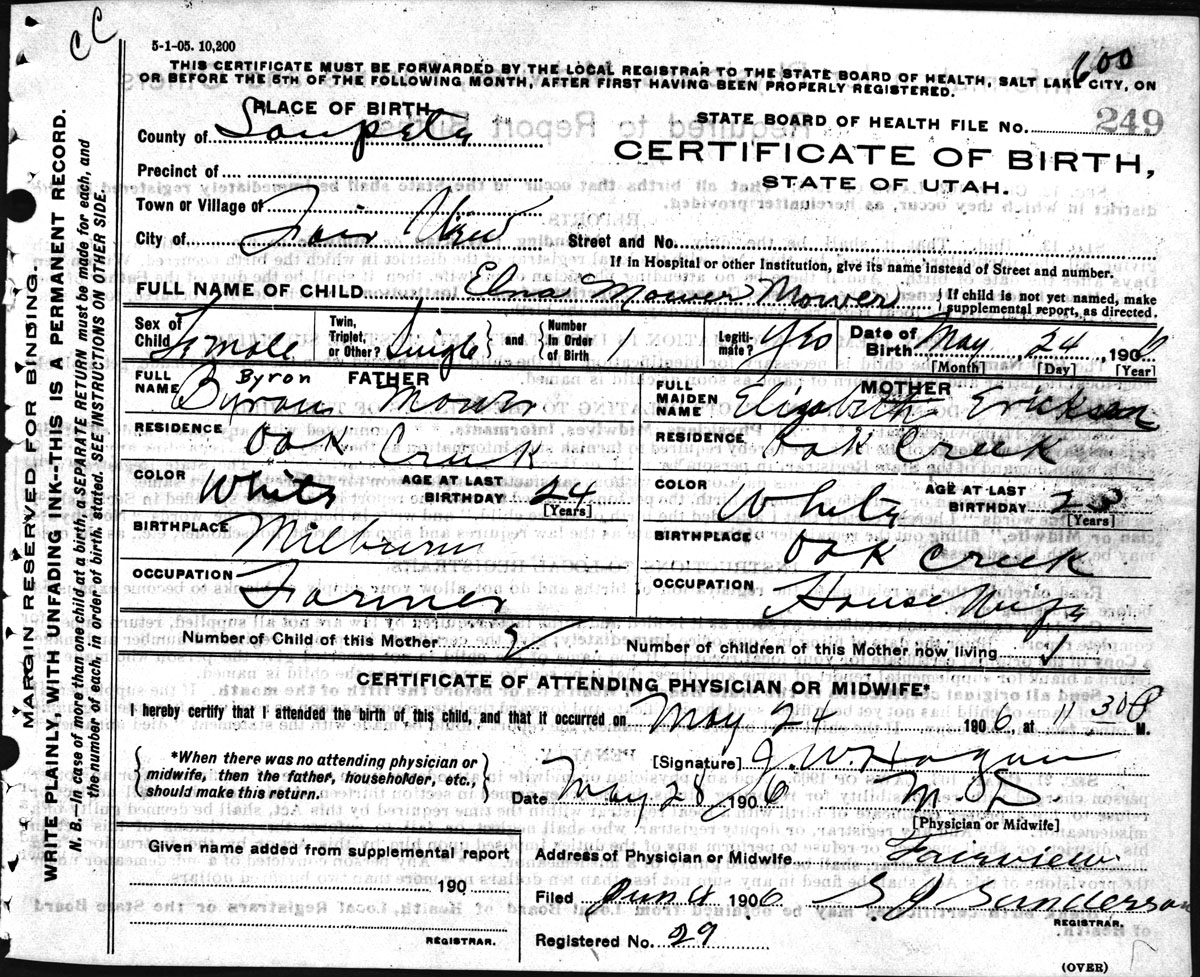 CC
5-1-05. 10,200
THIS CERTIFICATE MUST BE FORWARDED BY THE LOCAL REGISTRAR TO THE STATE BOARD OF HEALTH, SALT LAKE CITY, ON
OR BEFORE THE 5TH OF THE FOLLOWING MONTH, AFTER FIRST HAVING BEEN PROPERLY REGISTERED.
600
PLACE OF BIRTH
STATE BOARD OF HEALTH FILE No. 249
County of Sanpete
CERTIFICATE OF BIRTH,
STATE OF UTAH.
Precinct of
Town or Village of
City of Fair View Street and No.
If in Hospital or other Institution, give its name instead of Street and number.
FULL NAME OF CHILD Elna Mower Mower { If child is not yet named, make supplemental report, as directed.
Sex of Child Female Twin, Triplet, or Other? Single and Number in Order of Birth 1 Legitimate? Yes Date of Birth May 24, 1906
[Month] [Day] [Year]
FULL NAME Byron Byron Mower FATHER
FULL MAIDEN NAME Elizabeth Erickson MOTHER
RESIDENCE Oak Creek
RESIDENCE Oak Creek
COLOR White AGE AT LAST BIRTHDAY 24 [Years]
COLOR White AGE AT LAST BIRTHDAY [Years]
BIRTHPLACE Milburn
BIRTHPLACE Oak Creek
OCCUPATION Farmer
OCCUPATION House Wife
Number of Child of this Mother 2 Number of children of this Mother now living 1
CERTIFICATE OF ATTENDING PHYSICIAN OR MIDWIFE*
I hereby certify that I attended the birth of this child, and that it occurred on May 24 1906, at 11 30 P M.
*When there was no attending physician or midwife, then the father, householder, etc., should make this return.
[Signature] J. W. Hagan
Date May 28 1906 M. D
[Physician or Midwife]
Given name added from supplemental report
190
REGISTRAR.
Address of Physician or Midwife Fairview
Filed Jun 4 1906 S J Sanderson
REGISTRAR.
Registered No. 29
(OVER)
MARGIN RESERVED FOR BINDING.
WRITE PLAINLY, WITH UNFADING INK--THIS IS A PERMANENT RECORD.
N. B.—In case of more than one child at a birth, a SEPARATE RETURN must be made for each, and
the number of each, in order of birth, stated. SEE INSTRUCTIONS ON OTHER SIDE.